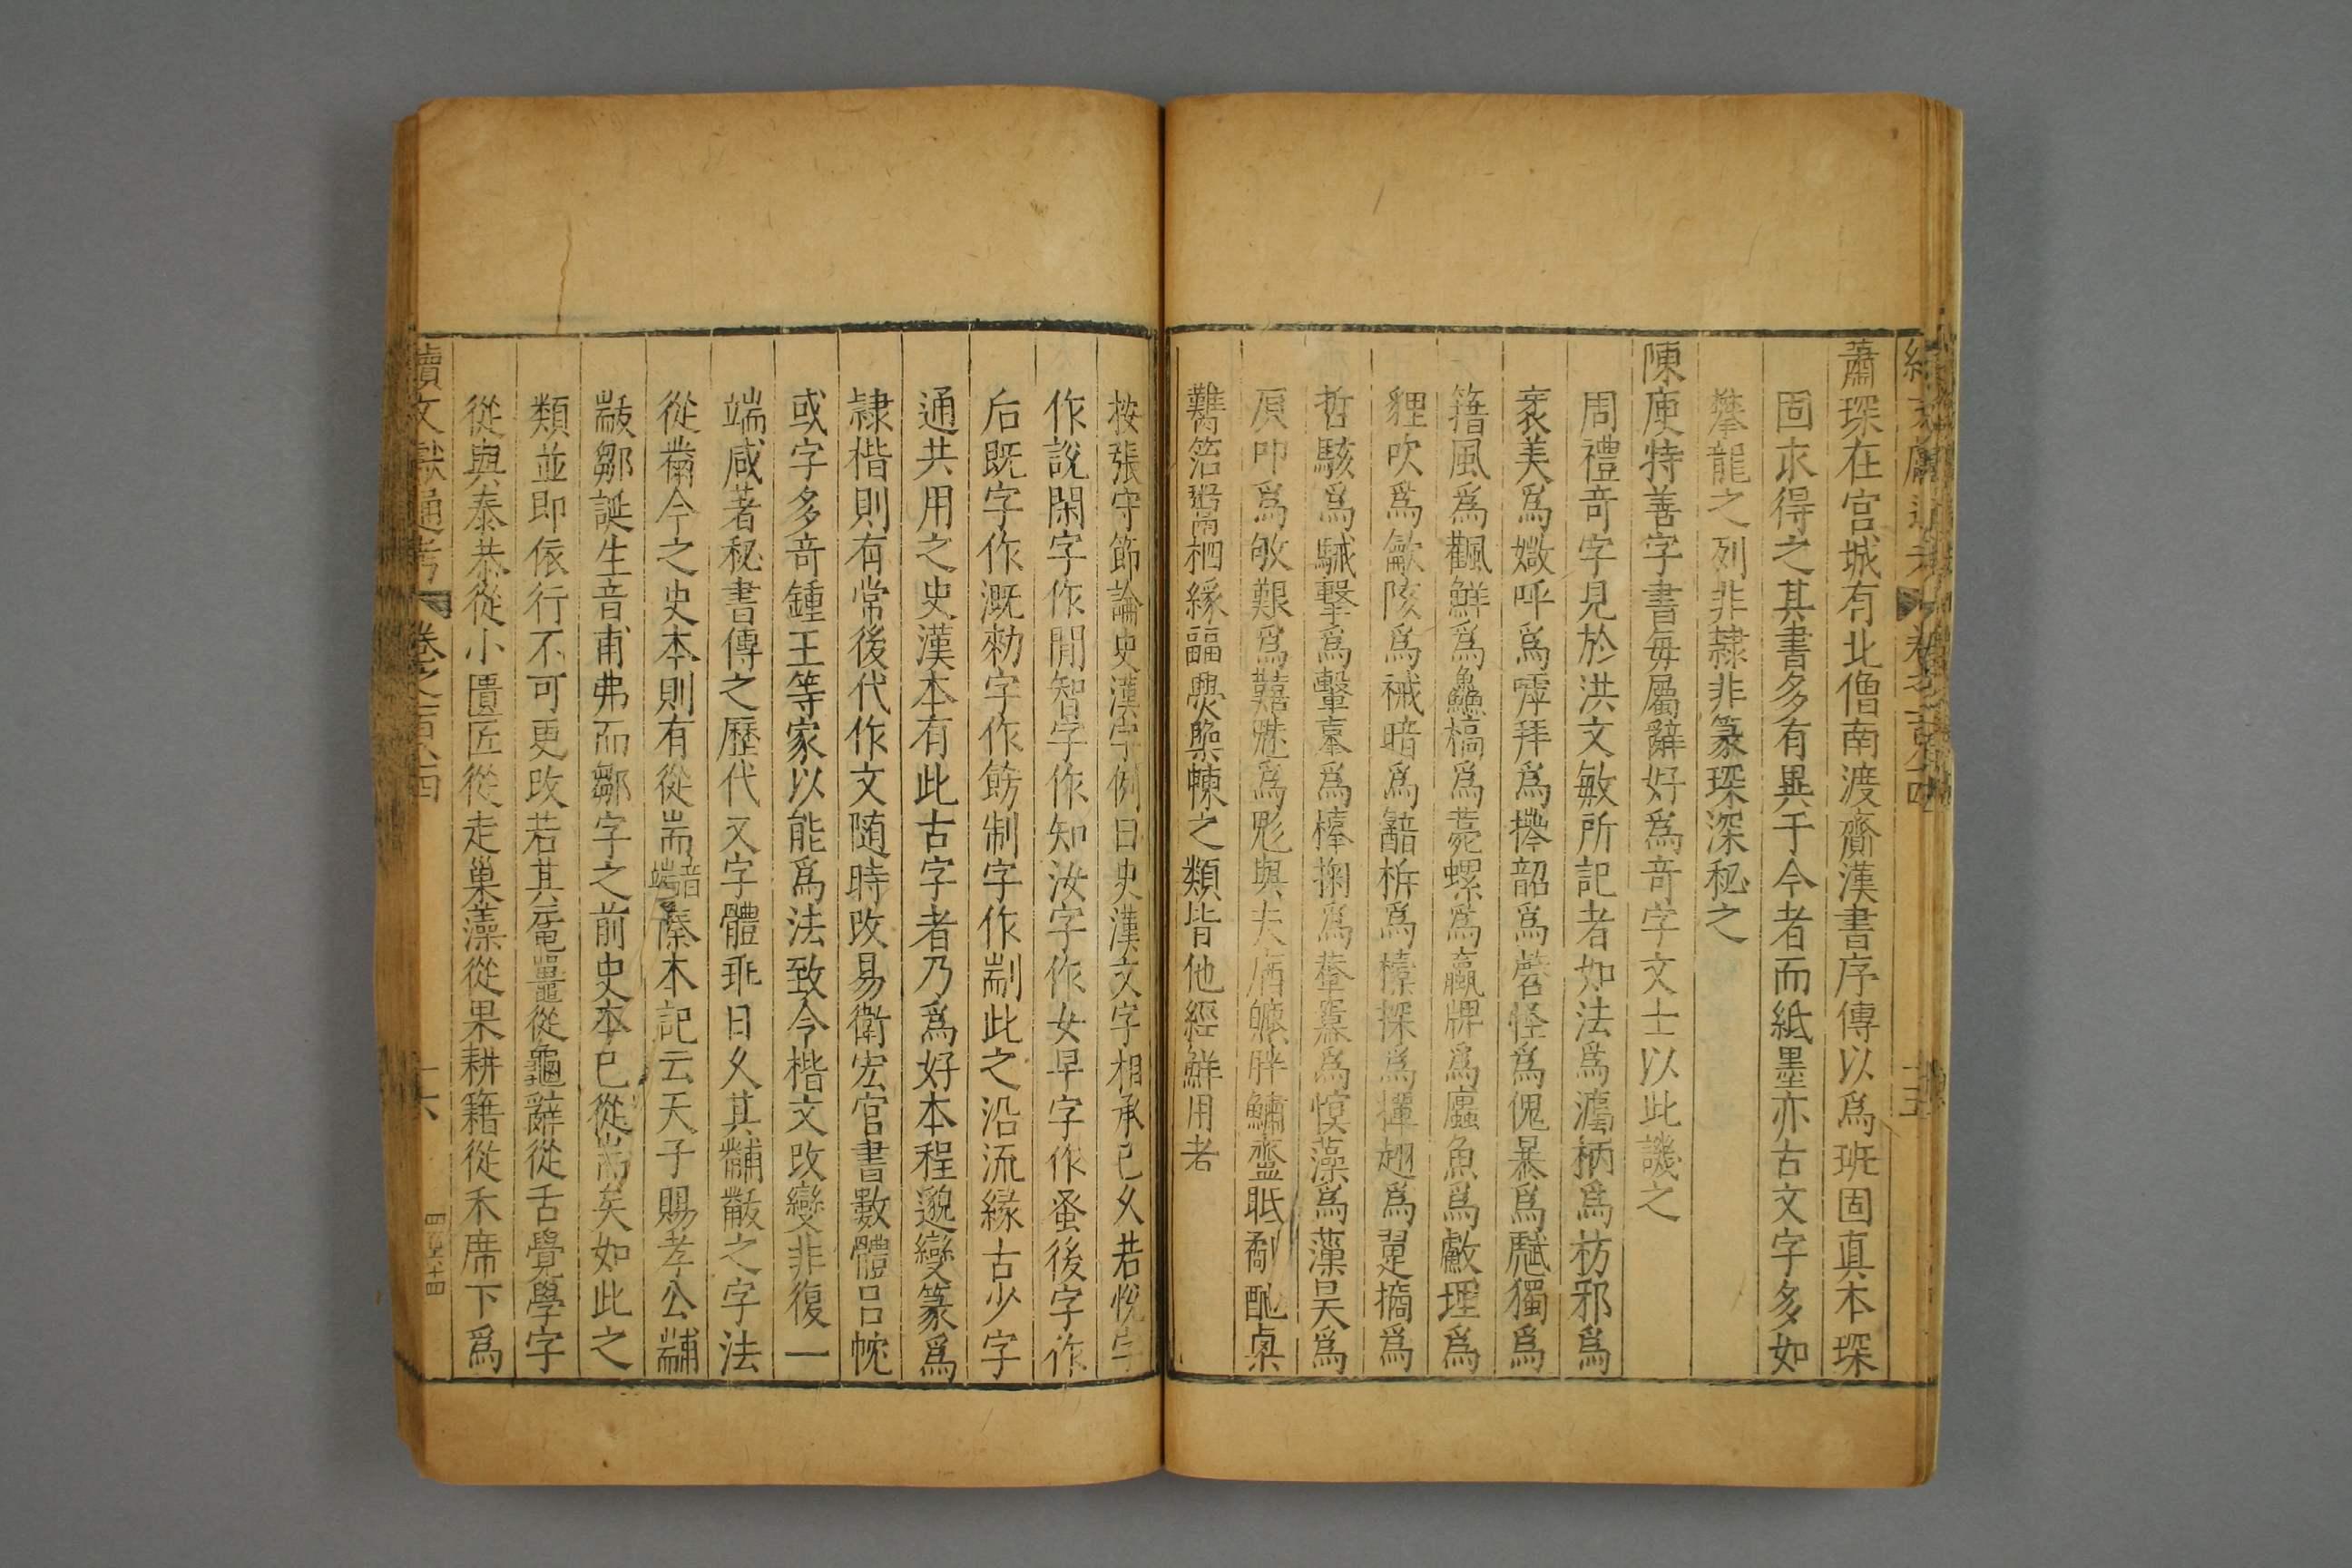 蕭琛在宫城有北僧南渡齎漢書序傳以爲班固真本琛
固求得之其書多有異于今者而紙墨亦古文字多如
攀龍之列非隸非篆琛深秘之
陳庾特善字書毎屬辭好爲竒字文士以此譏之
周禮竒字見於洪文敏所記者如法爲灋柄爲枋邪爲
衺美爲媺呼爲嘑拜爲㩘韶爲磬怪爲傀暴爲虣獨爲
籍風爲飌鮮爲鱻槁爲薧螺爲蠃牌爲蠯魚爲䱷埋爲
貍吹爲龡陔爲祴暗爲韽柝爲㯓探爲撢趐爲翨摘爲
硩駭爲駴擊爲轚 爲 掬爲 爲幎藻爲薻昊爲
叩爲敂艱爲囏魅爲鬽與夫 胖鱐齍眡 酏
笘 栖緣 之類皆他經鮮用者
按張守節論史漢字例曰史漢文字相承已乆若悅字
作説閑字作閒智字作知汝字作女早字作蚤後字作
后既字作溉勑字作飭制字作剬此之沿流緣古少字
通共用之史漢本有此古字者乃爲好本程邈變篆爲
隷楷則有常後代作文随時改易衛宏官書數體吕忱
或字多竒鍾王等家以能爲法致令楷文改變非復一
端咸著秘書傳之歷代又字體乖日乆其黼黻之字法
從黹今之史本則有從耑音端秦本記云天子賜孝公黼
黻鄒誕生音甫弗而鄒字之前史本已從耑矣如此之
類並即依行不可更改若其黿鼉從龜辭從舌覺學字
從與泰恭從小匱匠從走巢藻從果耕籍從禾席下爲
續文獻通考 卷之一百八四 十六